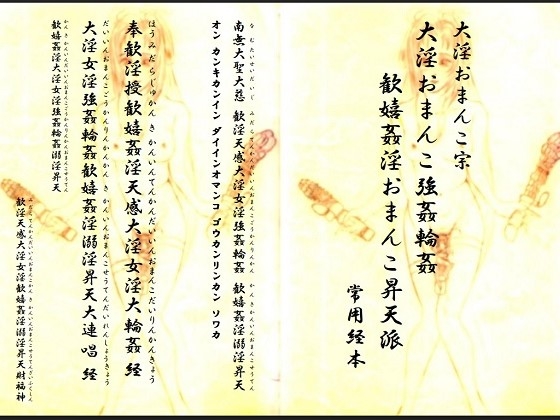 大淫おまんこ宗
大淫おまんこ強姦輪姦
歓嬉姦淫おまんこ昇天派
常用経本
南無大聖大慈 歓淫天感大淫女淫強姦輪姦 歓嬉姦淫溺淫昇天
オン カンキカンイン ダイインオマンコ ゴウカンリンカン ソワカ
奉歓淫授歓嬉姦淫天感大淫女淫大輪姦 経
大淫女淫強姦輪姦歓嬉姦淫溺淫昇天大連唱 経
歓嬉姦淫大淫女淫強姦輪姦溺淫昇天
歓淫天感大淫女淫歓嬉姦淫溺淫昇天財福神